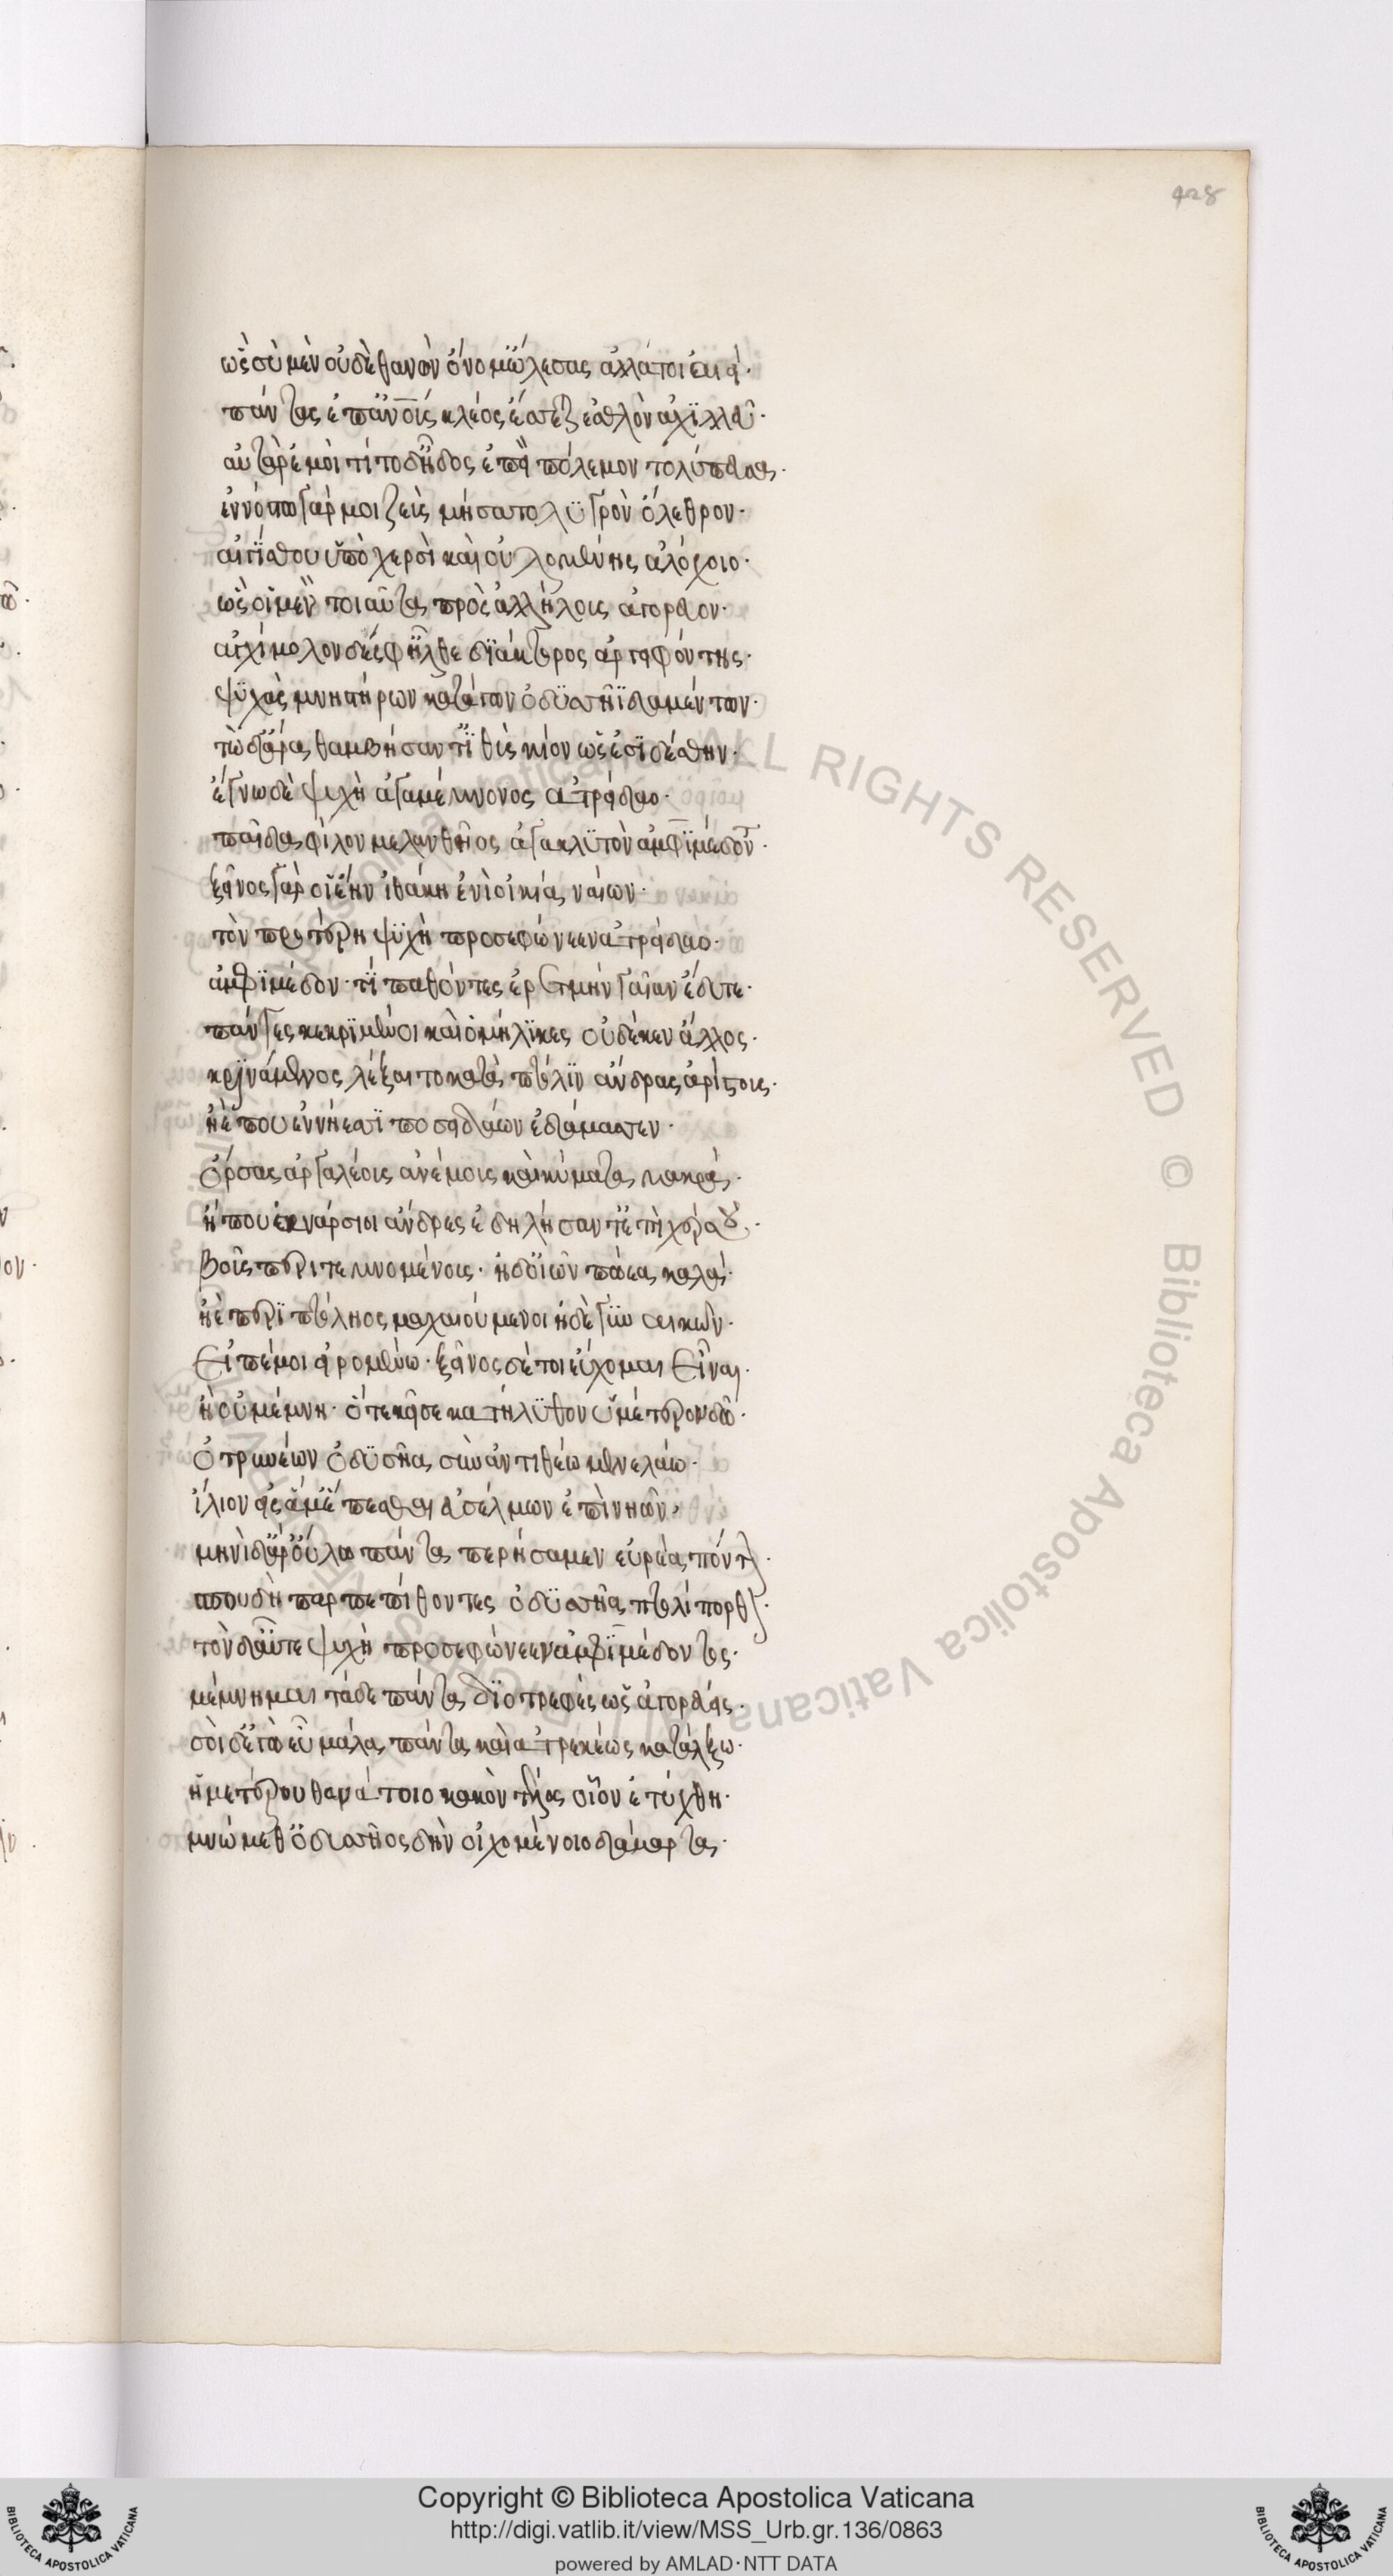 428
ὣς σὺ μὲν οὐδὲ θανὼν ὄνομ' ὤλεσας ἀλλά τοι αἰεὶ·
πάντας ἐπ' ἀνθρώποις κλέος ἔσσεται ἐσθλὸν ἀχιλλεῦ·
αὐτὰρ ἐμοὶ τί τόδ' ἦδος ἐπεὶ πόλεμον τολύπευσα·
ἐν νόστω γάρ μοι ζεὺς μήσατο λϋγρὸν ὄλεθρον·
αἰγίσθου ὑπὸ χερσὶ καὶ οὐλομένης ἀλόχοιο·
ὣς οἱ μὲν τοιαῦτα πρὸς ἀλλήλους ἀγόρευον·
ἀγχίμολον δέ σφ' ἦλθε διάκτορος ἀργειφόντης·
ψυχὰς μνηστήρων κατάγων ὀδϋσῆϊ δαμέντων·
τὼ δ' ἄρα θαμβήσαντ' ἰθὺς κίον ὡς ἐσιδέσθην·
ἔγνω δὲ ψυχὴ ἀγαμέμνονος ἀτρείδαο·
παῖδα φίλον μελανθῆος ἀγακλϋτὸν ἀμφιμέδοντ·
ξεῖνος γάρ οἱ ἔην ἰθάκη ἐνὶ οἰκία ναίων·
τὸν προτέρη ψϋχὴ προσεφώνεεν ἀτρείδαο·
ἀμφίμεδον· τί παθόντες ἐρεμνὴν γαῖαν ἔδυτε·
πάντες κεκριμένοι καὶ ὁμήλϊκες οὐδέ κεν ἄλλως·
κρινάμενος λέξαιτο κατὰ πτόλϊν ἄνδρας ἀρίστους·
ἢ ὔμμ' ἐν νήεσσι ποσειδάων ἐδάμασσεν·
ὄρσας ἀργαλέους ἀνέμους καὶ κύματα μακρά·
ἤ που ἀνάρσιοι ἄνδρες ἐδηλήσαντ' ἐπὶ χέρσου·
βοῦς περιτεμνομένους· ἠδ' οἰῶν πώεα καλά·
ἠὲ περὶ πτόληος μαχεούμενοι ἠδὲ γυναικῶν·
Εἰπέ μοι εἰρομένω· ξεῖνος δέ τοι εὔχομαι Εἶναι·
ἢ οὐ μέμνη· ὅτε κεῖσε κατήλϋθον ὑμέτερον δῶ·
ὀτρυνέων ὀδϋσῆα σὺν ἀντιθέω μενελάω·
ἴλιον εἰς ἅμ' ἕπεσθαι ἐϋσσέλμων ἐπὶ νηῶν·
μηνὶ δ' ἄρ' οὔλω πάντα περήσαμεν εὐρέα πόντον·
σπουδῆ παρπεπιθόντες ὀδϋσσῆα πτολίπορθον·
τὸν δ' αὖτε ψυχὴ προσεφώνεεν ἀμφιμέδοντος·
μέμνημαι τάδε πάντα διοτρεφὲς ὡς ἀγορεύεις·
σοὶ δ' ἐγὼ εὖ μάλα πάντα καὶ ἀτρεκέως καταλέξω·
ἡμετέρου θανάτοιο κακὸν τέλος οἷον ἐτύχθη·
μνώμεθ' ὀδυσσῆος δὴν οἰχομένοιο δάμαρτα·
ALL RIGHTS RESERVED © Biblioteca Apostolica Vaticana
Copyright © Biblioteca Apostolica Vaticana
http://digi.vatlib.it/view/MSS_Urb.gr.136/0863
powered by AMLAD·NTT DATA
BIBLIOTECA APOSTOLICA VATICANA
BIBLIOTECA APOSTOLICA VATICANA